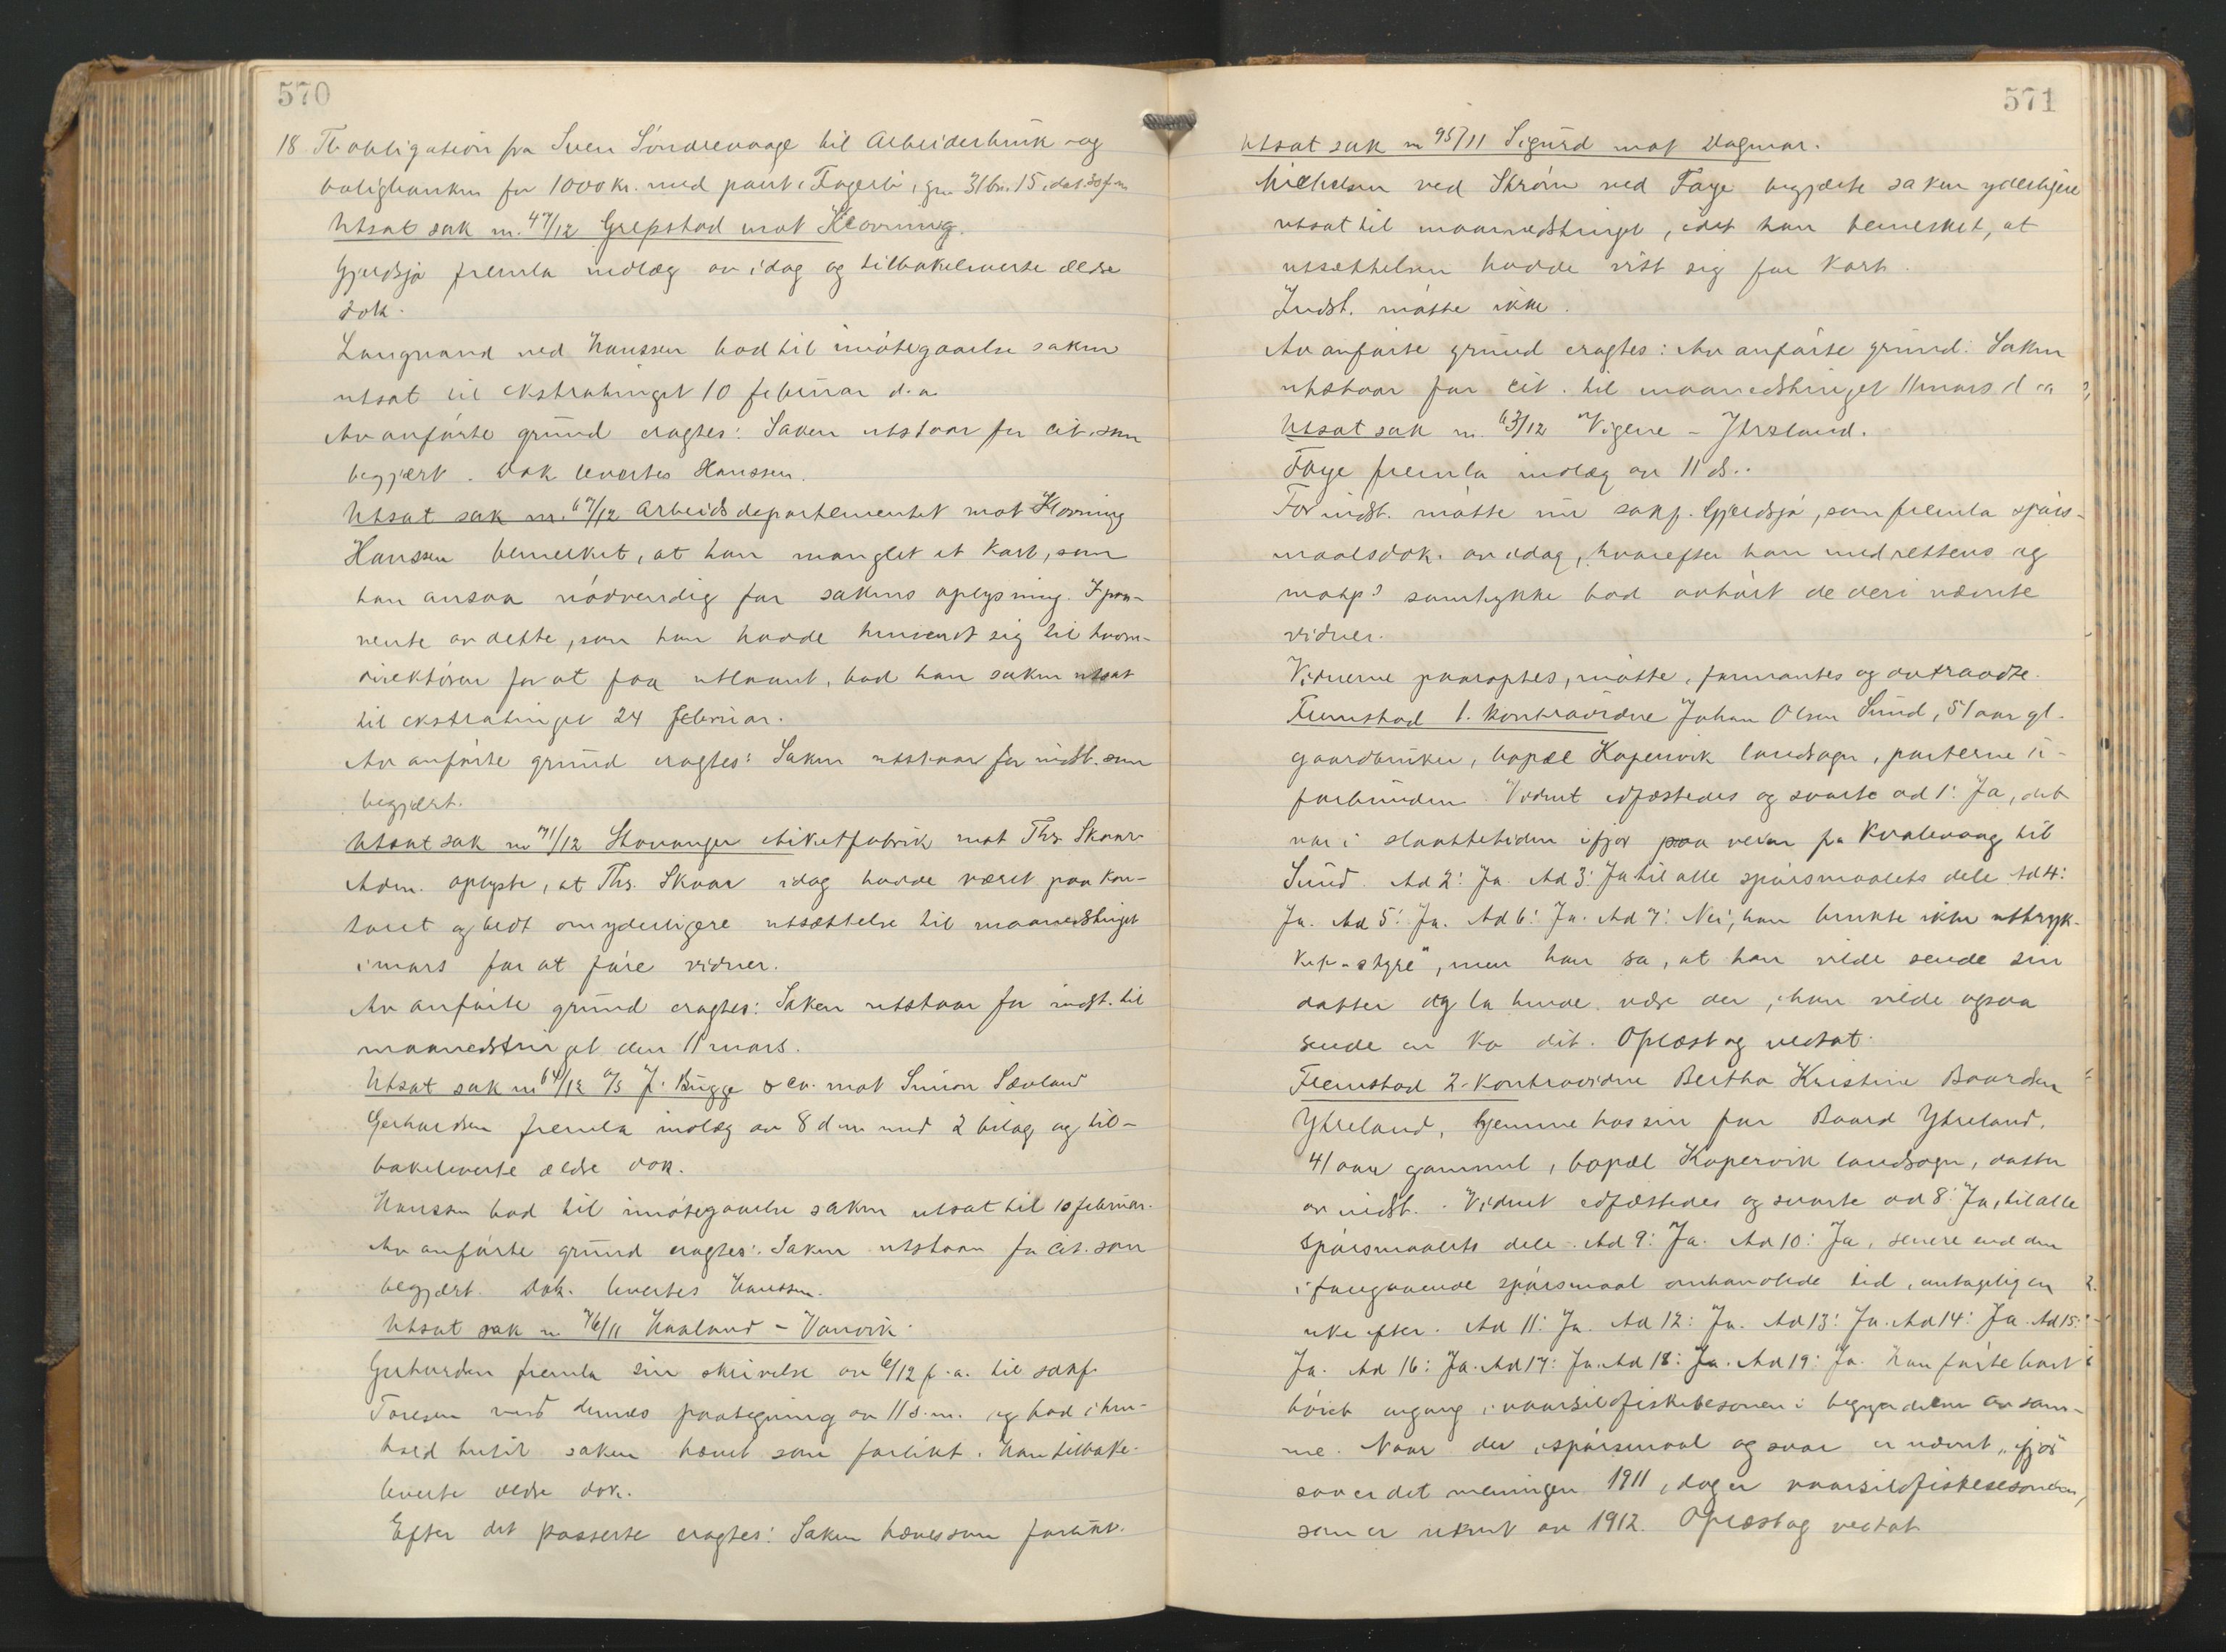 570
18 Tl. obligation fra Sven Söndrevaage til Arbeiderbruk -og
boligbanken for 1000 kr. med pant i Fagerli, gn 31 bn. 15, dat.
Utsat sak nr. 47/12 Grepstad mot Klovning.
Gjerdsjö fremla indlæg av idag og tilbakeleverte ældre
dok.
Langmand ved Hanssen bad til imötegaaelse saken
utsat til ekstratinget 10 februar d.a.
Av anförte grund eragtes: Saken utstaar for cit. som
begjært. Dok levertes Hanssen.
Utsat sak nr. 67/12 Arbeidsdepartementet mot Klovning
Hanssen bemerket, at han manglet et kart, som
han ansaa nödvendig for sakens oplysning. I paa-
vente av dette, som han hadde henvendt sig til havne-
direktören for at faa utlaant, bad han saken utsat
til ekstratinget 24 februar.
Av anförte grund eragtes: Saken utstaar for indst. som
begjært.
Utsat sak nr 71/12 Stavanger Etiketfabrik mot Ths. Skaar
Adm. oplyste, at Ths. Skaar idag hadde været paa kon-
toret og bedt om yderligere utsættelse til maanedstinget
i mars for at före vidner.
Av anförte grund eragtes: Saken utstaar for indst. til
maanedstinget den 11 mars.
Utsat sak nr 64/12 A/S J. Bugge & Co. mot Simon Sævland
Gerhardsen fremla indlæg av 8 d.m. med 2 bilag og til-
bakeleverte ældre dok.
Hanssen bad til imötegaaelse saken utsat til 10 februar.
Av anförte grund eragtes: Saken utstaar for cit. som
begjært. Dok. levertes Hanssen.
Utsat sak nr. 76/11 Haaland - Vanvik.
Gerhardsen fremla sin skrivelse av 6/12 f.a. til sakf.
Toresen med dennes paategning av 11 d.m. og bad i hen-
hold hertil saken hævet som forlikt. Han tilbake-
leverte ældre dok.
Efter det passerte eragtes: Saken hæves som forlikt.
571
Utsat sak nr 95/11 Sigurd mot Dagmar.
ved Ström ved Faye begjærte saken yderligere
utsat til maanedstinget, idet han bemerket, at
utsættelsen hadde vist sig for kort.
Indst. mötte ikke.
Av anförte grund eragtes: Av anförte grund. Saken
utstaar for cit. til maanedstinget 11 mars d a
Utsat sak nr. 63/12 Vigene - Ytreland.
Faye fremla indlæg av 11 ds..
For indst. mötte nu sakf. Gjerdsjö, som fremla spörs-
maalsdok. av idag, hvorefter han med rettens og
motp? samtykke bad avhört de deri nævnte
vidner.
Vidnerne paaroptes, mötte, formantes og avtraadte.
Fremstod 1. kontravidne Johan Olsen Sund, 51 aar gl.
gaardbruker, bopæl Kopervik landsogn, parterne u-
forbunden. Vidnet edfæstedes og svarte ad 1: Ja, det
var i slaattetiden ifjor paa veien fra Kvalevaag til
Sund. Ad 2: Ja. Ad 3: Ja til alle spörsmaalets dele Ad 4:
Ja. Ad 5: Ja. Ad 6: Ja. Ad 7: Nei, han brukte ikke uttryk-
ket "styre", men han sa, at han vilde sende sin
datter og la hende være der, han vilde ogsaa
sende en ko dit. Oplæst og vedtat.
Fremstod 2. kontravidne Bertha Kristine Baardsen
Ytreland, hjemme hos sin far Baard Ytreland,
41 aar gammel, bopæl Kopervik landsogn, datter
av indst. Vidnet edfæstedes og svarte ad 8: Ja, til alle
spörsmaalets dele. Ad 9: Ja. Ad 10: Ja, senere end den
i foregaaende spörsmaal omhandlede tid, antagelig en
uke efter. Ad 11: Ja. Ad 12: Ja. Ad 13: Ja. Ad 14: Ja. Ad 15:
Ja. Ad 16: Ja. Ad 17: Ja. Ad 18: Ja. Ad 19: Ja. Han förte bort
höiet engang i vaarsildfiskesesonen i begyndelsen av sam-
me. Naar der i spörsmaal og svar er nævnt "ifjor"
saa er det meningen 1911, dog er vaarsildfiskesesonen,
som er nævnt av 1912. Oplæst og vedtat